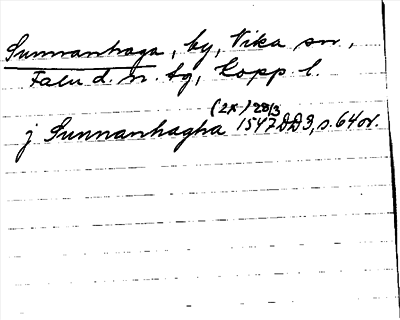 Sunnanhaga, by, Vika sn,
Falu d. n. tg, Kopp. l.
(2x) 28/3
j Sunnanhagha 1547 DD 3, s. 64 or.